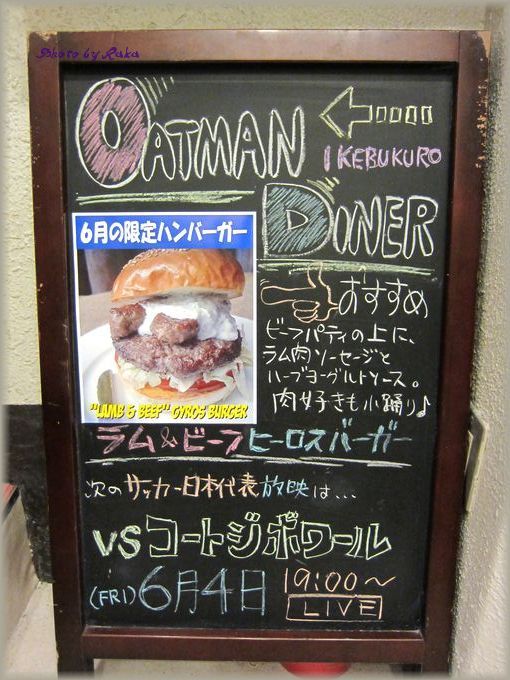 Photo by Raka
OATMAN
IKEBUKURO
DINER
6月の限定ハンバーガー
"LAMB & BEEF" GYROS BURGER
おすすめ
ビーフパティの上に、
ラム肉ソーセージと
ハーブヨーグルトソース。
肉好きも小踊り♪
ラム&ビーフヒーロスバーガー
次のサッカー日本代表放映は...
VSコートジボワール
(FRI)6月4日 19:00〜
LIVE